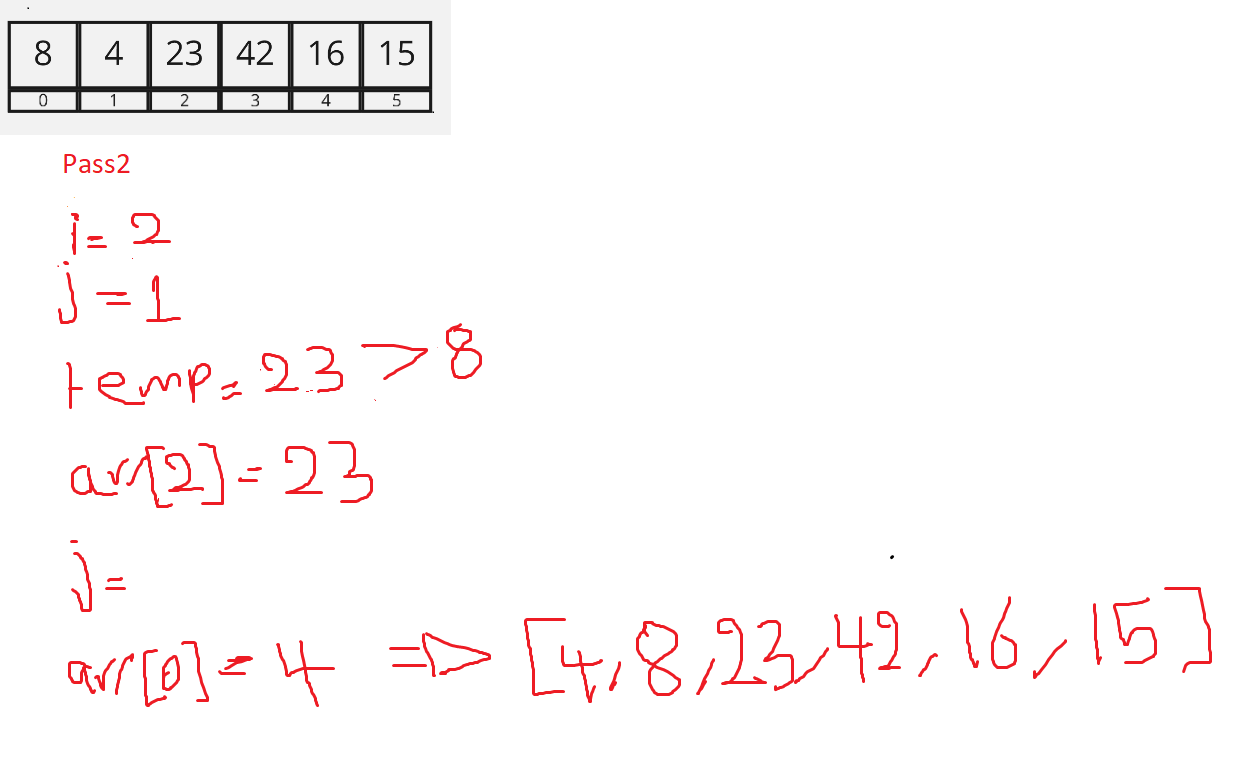 8 4 23 42 16 15
0 1 2 3 4 5
Pass2
i= 2
j = 1
temp = 23 > 8
arr[2] = 23
j =
arr[0] = 4 => [4, 8, 23, 42, 16, 15]